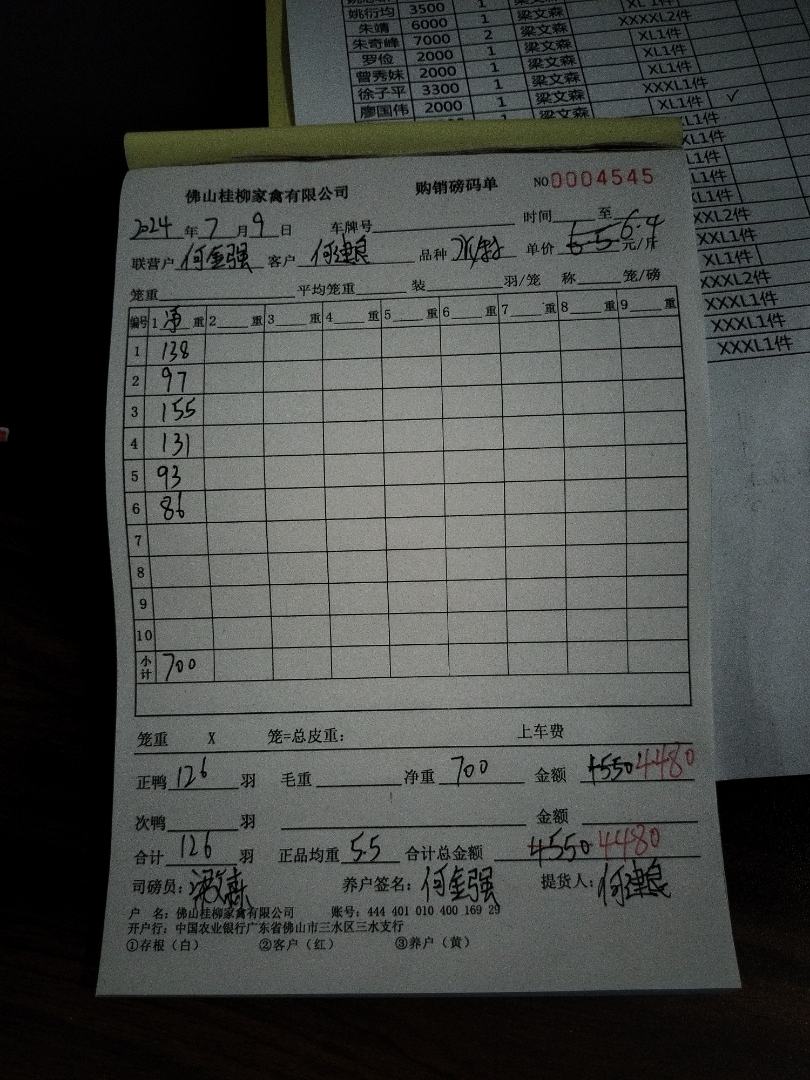 姚衍均 3500 1 梁文森 XL1件
朱靖 6000 1 梁文森 XXXXL2件
朱奇峰 7000 2 梁文森 XL1件
罗俭 2000 1 梁文森 XL1件
曾秀妹 2000 1 梁文森 XL1件
徐子平 3300 1 梁文森 XXXL1件
廖国伟 2000 1 梁文森 XL1件 ✓
佛山桂柳家禽有限公司 购销磅码单 NO0004545
2024年7月9日 车牌号 时间 至
联营户 何金强 客户 何建良 品种 单价 6.5 6.4 元/斤
笼重 平均笼重 装 羽/笼 称 笼/磅
编号 1 净 重 2 重 3 重 4 重 5 重 6 重 7 重 8 重 9 重
1 138
2 97
3 155
4 131
5 93
6 86
7
8
9
10
小计 700
笼重 X 笼=总皮重: 上车费
正鸭 126 羽 毛重 净重 700 金额 4550 4480
次鸭 羽 金额
合计 126 羽 正品均重 5.5 合计总金额 4550 4480
司磅员: 梁文森 养户签名: 何金强 提货人: 何建良
户 名: 佛山桂柳家禽有限公司 账号: 444 401 010 400 169 29
开户行: 中国农业银行广东省佛山市三水区三水支行
①存根(白) ②客户(红) ③养户(黄)